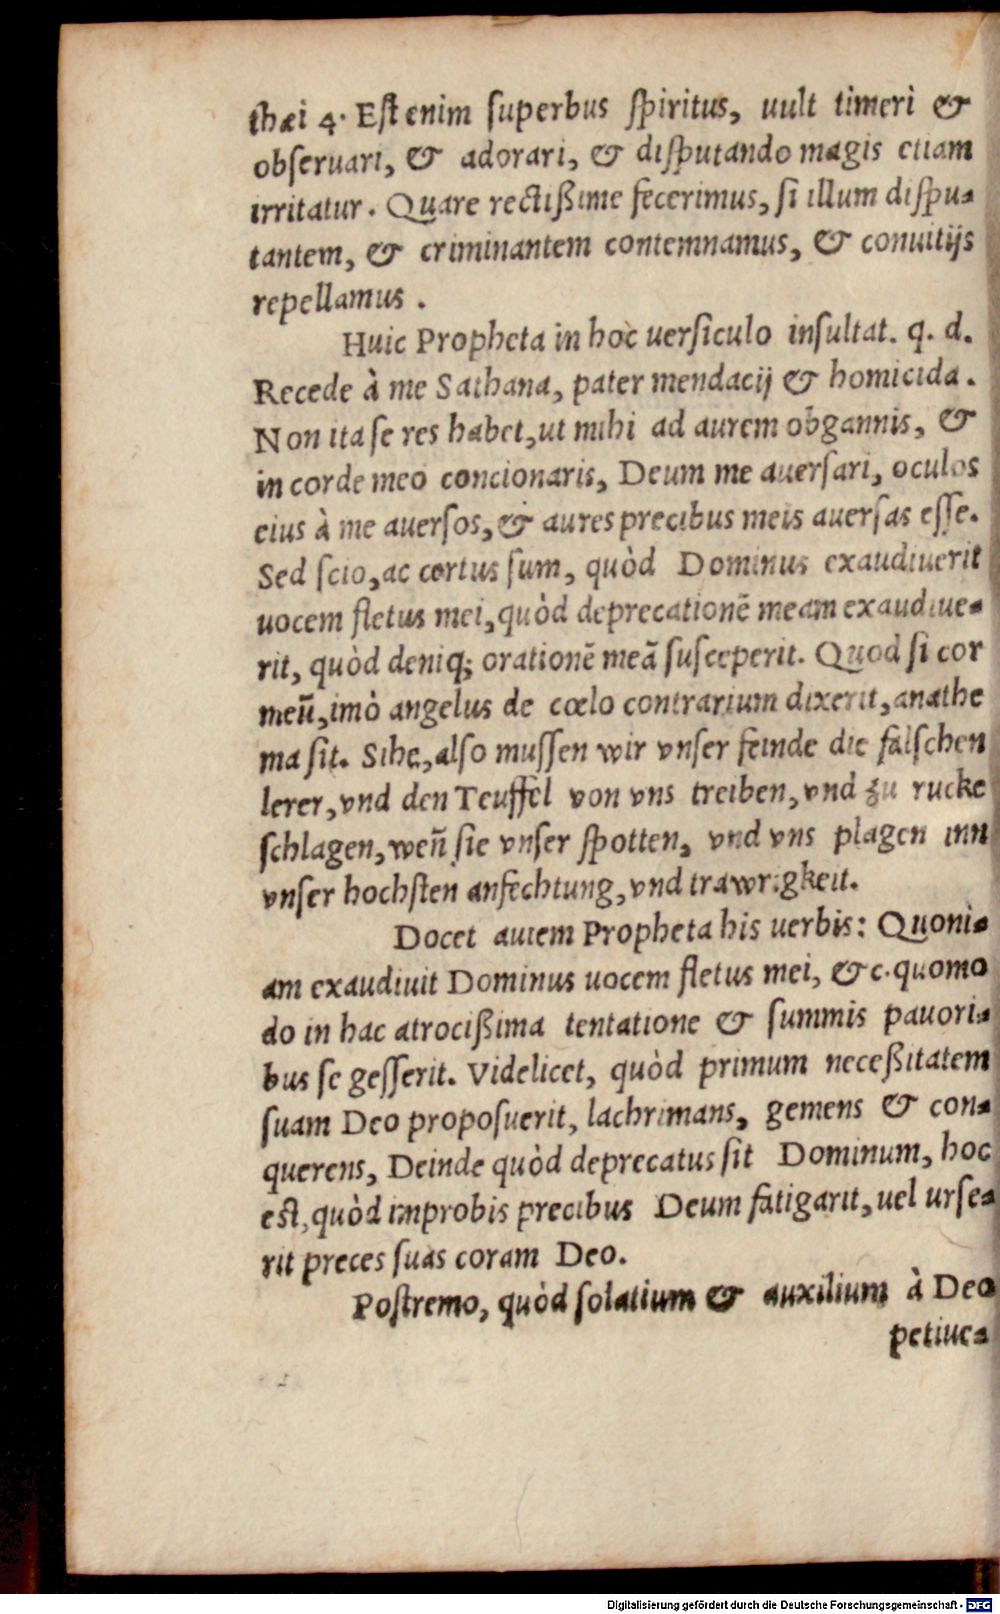 thæi 4. Est enim ſuperbus ſpiritus, uult timeri &
obſeruari, & adorari, & diſputando magis etiam
irritatur. Quare rectißime fecerimus, ſi illum diſpu-
tantem, & criminantem contemnamus, & conuitijs
repellamus.
Huic Propheta in hoc uerſiculo inſultat. q. d.
Recede à me Sathana, pater mendacij & homicida.
Non ita ſe res habet, ut mihi ad aurem obgannis, &
in corde meo concionaris, Deum me auerſari, oculos
eius à me auerſos, & aures precibus meis auerſas eſſe.
Sed ſcio, ac certus ſum, quòd Dominus exaudiuerit
uocem fletus mei, quòd deprecationē meam exaudiue-
rit, quòd deniq; orationē meã ſuſceperit. Quod ſi cor
meū, imò angelus de cœlo contrarium dixerit, anathe
ma ſit. Sihe, alſo muſſen wir vnſer feinde die falſchen
lerer, vnd den Teuffel von vns treiben, vnd zu rucke
ſchlagen, weñ ſie vnſer ſpotten, vnd vns plagen inn
vnſer hochſten anfechtung, vnd trawrigkeit.
Docet autem Propheta his uerbis: Quoni-
am exaudiuit Dominus uocem fletus mei, &c. quomo
do in hac atrocißima tentatione & ſummis pauori-
bus ſe geſſerit. Videlicet, quòd primum neceßitatem
ſuam Deo propoſuerit, lachrimans, gemens & con-
querens, Deinde quòd deprecatus ſit Dominum, hoc
eſt, quòd improbis precibus Deum fatigarit, uel urſe-
rit preces ſuas coram Deo.
Poſtremo, quòd ſolatium & auxilium à Deo
petiue-
Digitalisierung gefördert durch die Deutsche Forschungsgemeinschaft - DFG